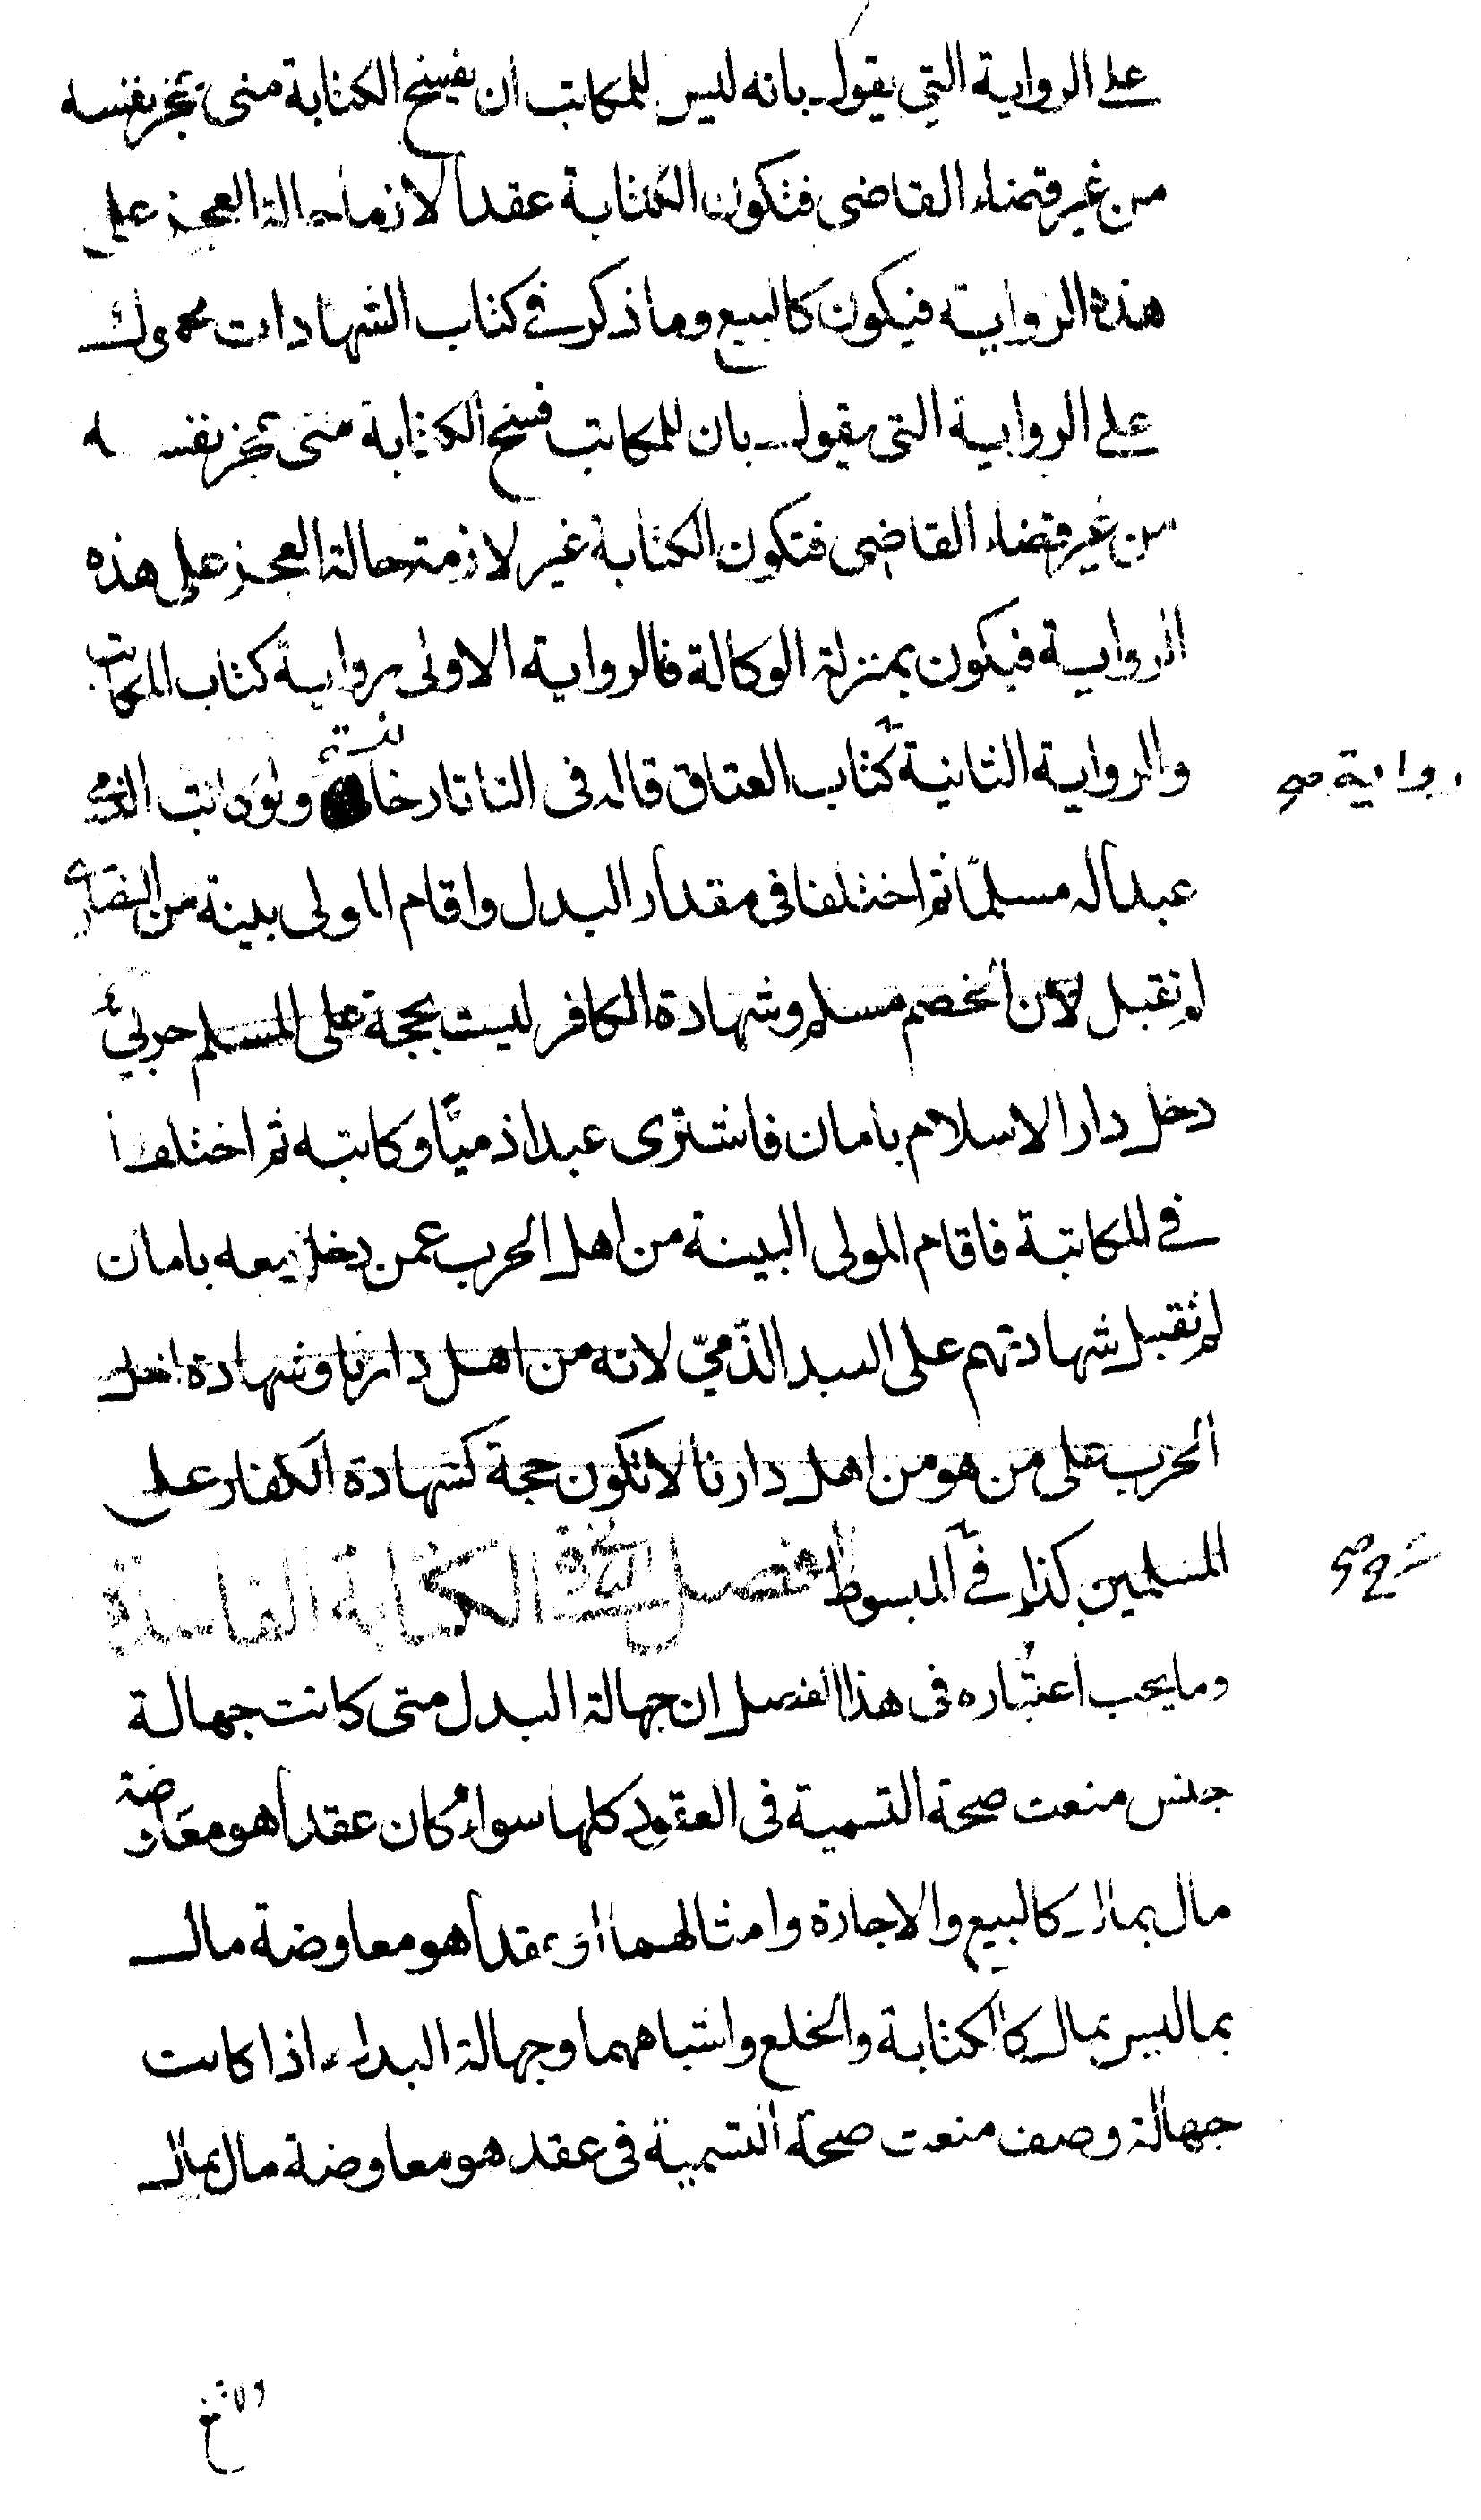 على الرواية التي يقول بانه ليس للمكاتب ان يفسخ الكتابة متى عجز بنفسه
من غير قضاء القاضى فتكون الكتابة عقدا لازما حالة العجز على
هذه الرواية فيكون كالبيع وما ذكر في كتاب الشهادات محمول
على الرواية التى يقول بان للمكاتب فسخ الكتابة متى عجز بنفسه
من غير قضاء القاضى فتكون الكتابة غير لازمة حالة العجز على هذه
الرواية فيكون بمنزلة الوكالة فالرواية الاولى رواية كتاب المكاتب
والرواية الثانية رواية صح كتاب العتاق قاله فى التاتارخانية ولو كاتب الذمي
عبدا له مسلما ثم اختلفا فى مقدار البدل واقام المولى بينة من النصارى
لم تقبل لان الخصم مسلم وشهادة الكافر ليست بحجة على المسلم حربي
دخل دار الاسلام بامان فاشترى عبدا ذميّا وكاتبه ثم اختلفا
في المكاتبة فاقام المولى البينة من اهل الحرب عمن دخل معه بامان
لم تقبل شهادتهم على العبد الذّميّ لانه من اهل دارنا وشهادة اهل
الحرب على من هو من اهل دارنا لا تكون حجة كشهادة الكفار على
المسلمين كذا في المبسوط فصل في الكتابة الفاسدة
وما يجب اعتباره فى هذا الفصل ان جهالة البدل متى كانت جهالة
جنس منعت صحة التسمية فى العقود كلها سواء كان عقدا هو معاوضة
مال بمال كالبيع والاجارة وامثالهما او عقدا هو معاوضة مال
بما ليس بمال كالكتابة والخلع واشباههما وجهالة البدل اذا كانت
جهالة وصف منعت صحة التسمية فى عقد هو معاوضة مال بمال